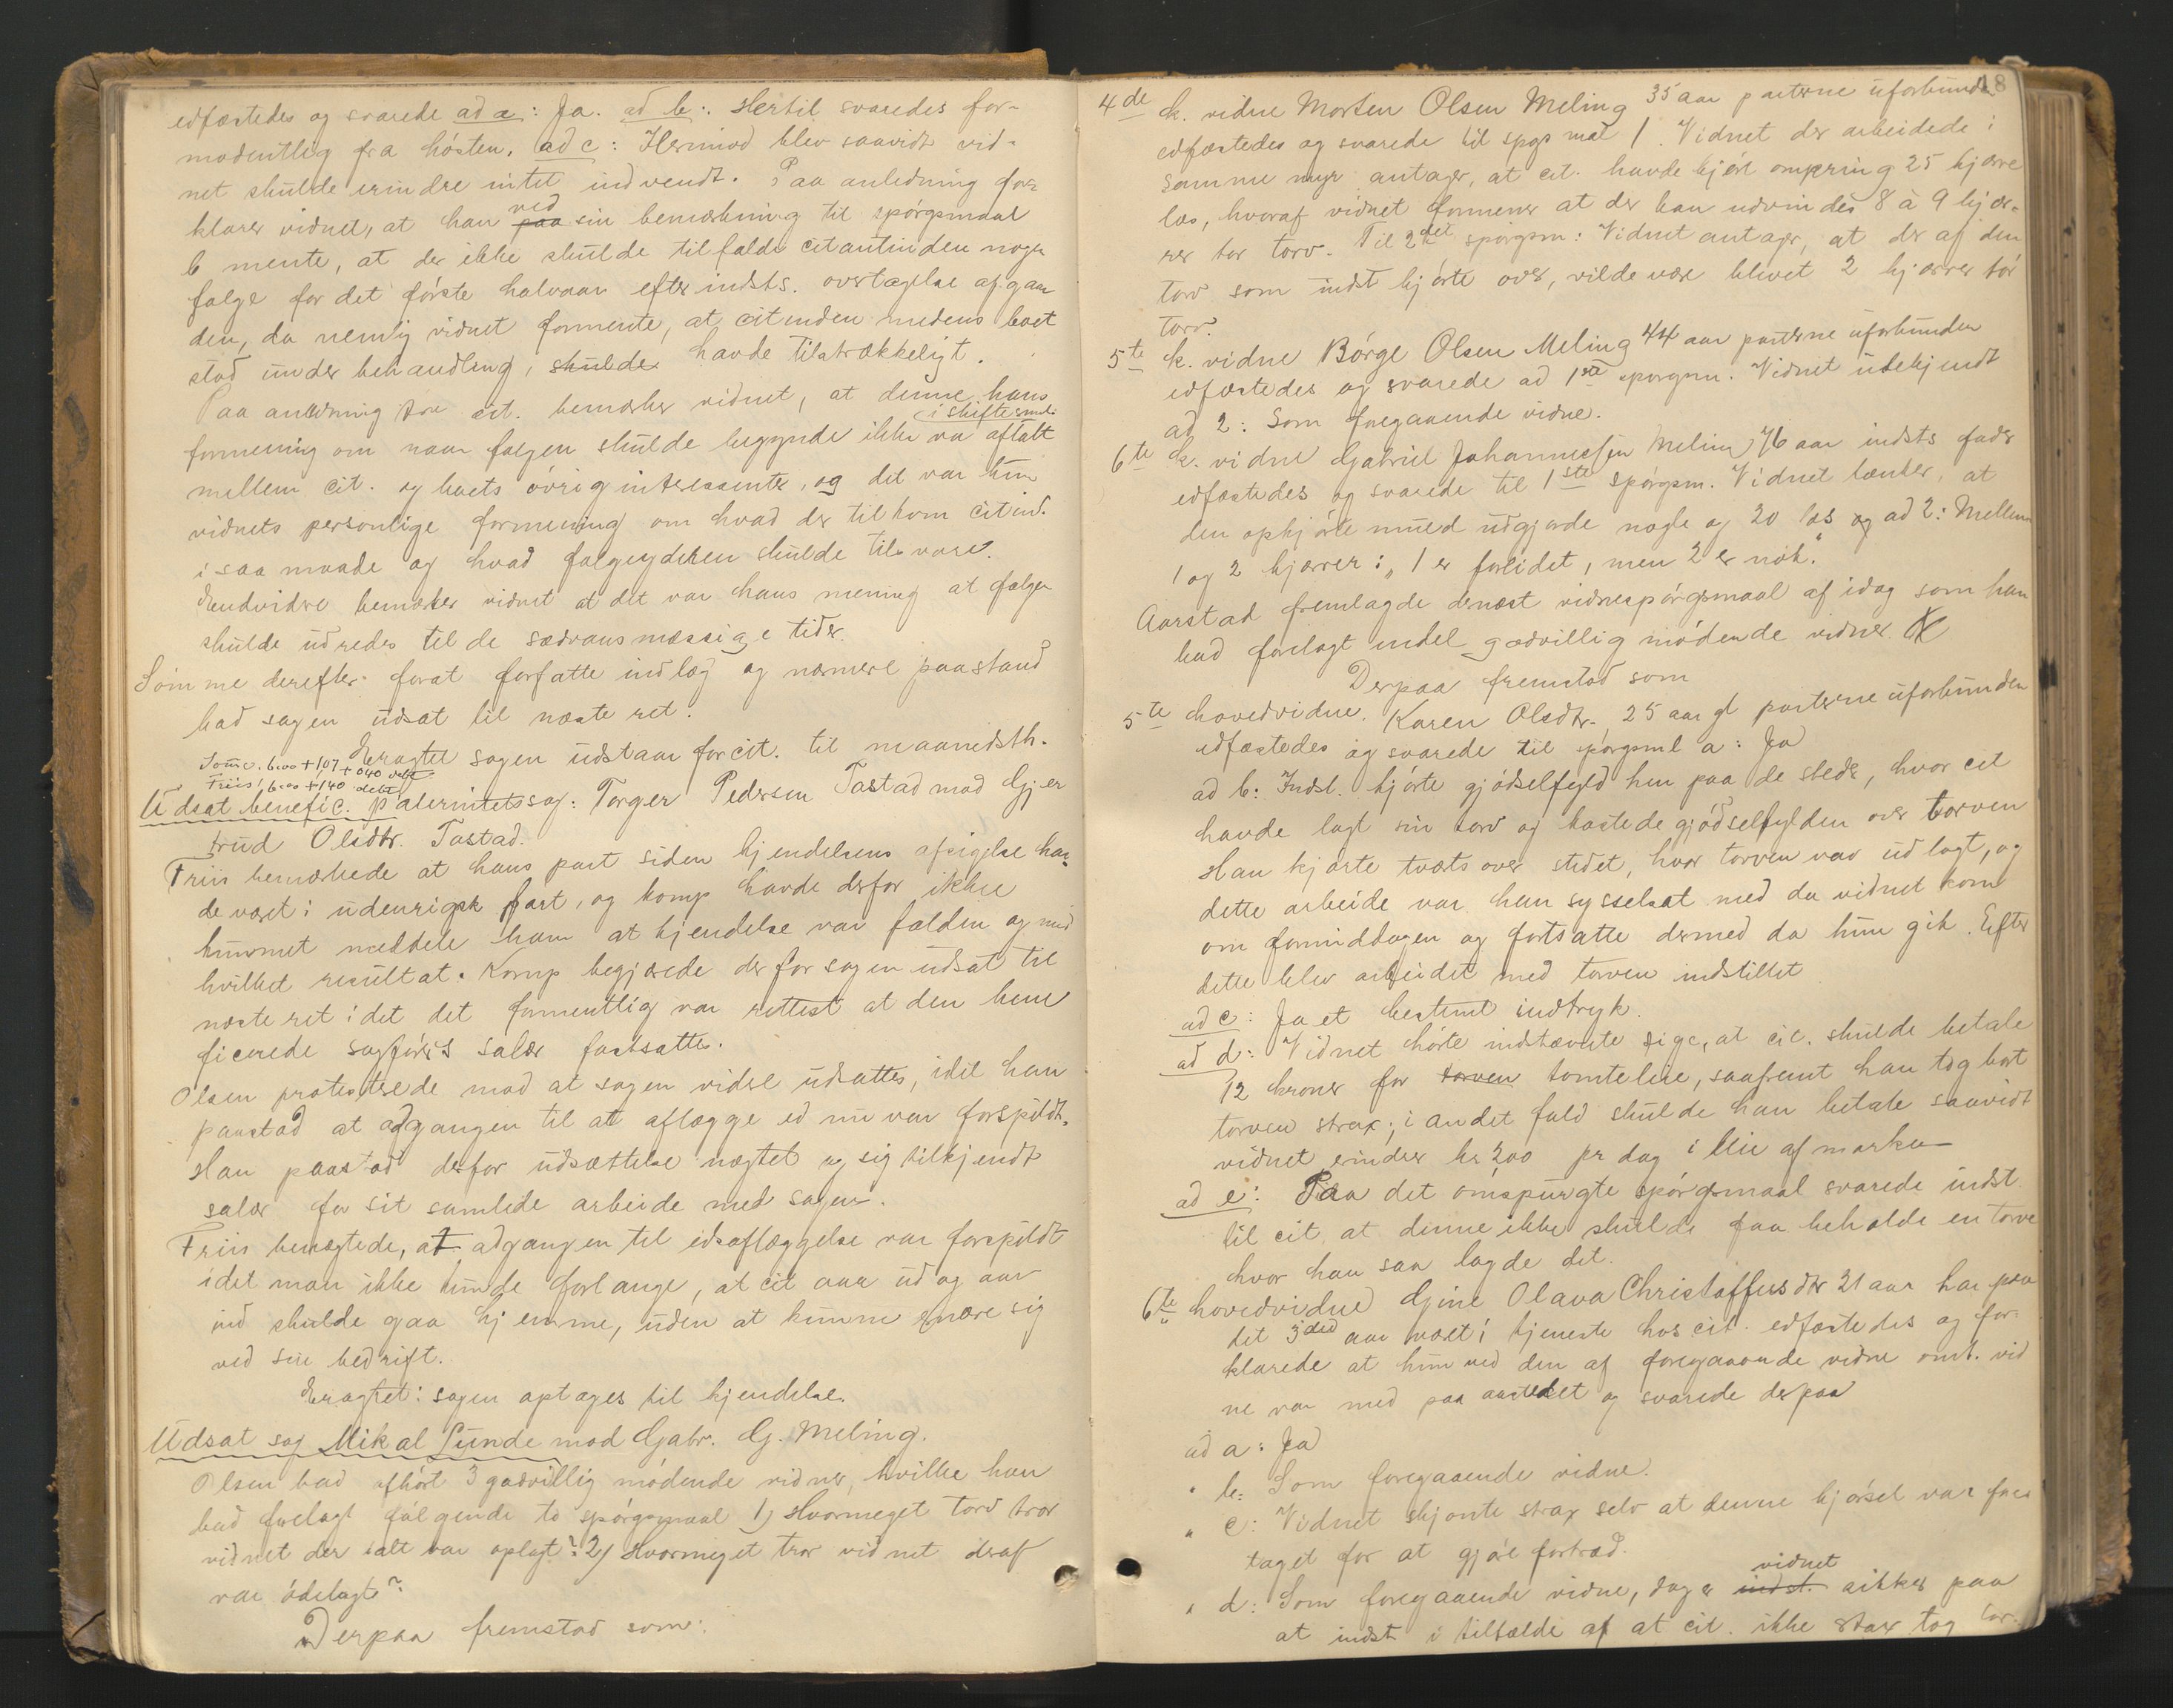 edfæstedes og svarede ad a: Ja. ad b: Hertil svaredes for-
modentlig fra høsten. ad c: Herimod blev saavidt vid-
net skulde erindre intet indvendt. Paa anledning for
klarer vidnet, at han ved paa sin bemærkning til spörgsmaal
b mente, at der ikke skulde tilfalde citantinden nogen
følge for det første halvaar efter indsts. overtagelse af gaar
den, da nemlig vidnet formente, at citinden medens boet
stod under behandling, skulde havde tilstrækkeligt.
Paa anledning fra cit. bemærker vidnet, at denne hans
formening om naar følgen skulde begynde ikke va aftalt i skiftesml.
mellem cit. og boets övrig interessenter, og det var kun
vidnets personlige formening om hvad der tilkom citind.
i saa maade og hvad følgeyderen skulde tilsvare.
Endvidere bemærker vidnet at det var hans mening at følgen
skulde udredes til de sædvansmæssige tider.
Sömme derefter forat forfatte indlæg og nærmere paastand
bad sagen udsat til næste ret.
Eragtet sagen udstaar for cit. til maanedsth.
Sömme. 6.00 + 107 + 040 delt
Friis 6.00 + 140 delt
Udsat benefic. paternitetssag: Torger Pedersen Tastad mod Gjer
trud Olsdtr. Tastad.
Friis bemærkede at hans part siden kjendelsens afsigelse hav
de været i udenrigsk fart, og komp havde derfor ikke
kunnet meddele ham at kjendelse var falden og med
hvilket resultat. Komp begjærede derfor sagen udsat til
næste ret idet det formentlig var rettest at den bene
ficerede sagførers salær fastsattes.
Olsen protesterede mod at sagen videre udsattes, idet han
paastod at adgangen til at aflægge ed nu var forspildt.
Han paastod derfor udsættelse nægtet og sig tilkjendt
salær for sit samlede arbeide med sagen.
Friis benægtede, at adgangen til edsaflæggelse var forspildt
idet man ikke kunde forlange, at cit aar ud og aar
ind skulde gaa hjemme, uden at kunne ernære sig
ved sin bedrift.
Eragtet: sagen optages til kjendelse
Udsat sag Mikal Lunde mod Gabr. G. Meling.
Olsen bad afhört 3 godvillig mödende vidner, hvilke han
bad forelagt fölgende to spörgsmaal 1) Hvormeget torv tror
vidnet der ialt var oplagt? 2) Hvormeget tror vidnet deraf
var ödelagt?
Derpaa fremstod som:
18
4de k. vidne Morten Olsen Meling 35 aar parterne uforbunden
edfæstedes og svarede til spgs mal 1. Vidnet der arbeidede i
samme myr antager, at cit. havde kjört omkring 25 kjærre
læs, hvoraf vidnet formener at der kan udvindes 8 à 9 kjær-
rer tør torv. Til 2det spörgsm: Vidnet antager, at der af den
torv som indst kjörte over, vilde være blivet 2 kjærrer tör
torv.
5te k. vidne Börge Olsen Meling 44 aar parterne uforbunden
edfæstedes og svarede ad 1ste spørgsm. Vidnet ubekjendt
ad 2: Som foregaaende vidne.
6te k. vidne Gabriel Johannessen Meling 76 aar indsts fader
edfæstedes og svarede til 1ste spørgsm. Vidnet tænker, at
den opkjörte mued udgjorde nogle og 20 læs og ad 2: Mellem
1 og 2 kjærrer: "1 er forlidet, men 2 er nok."
Aarstad fremlagde dernæst vidnespörgsmaal af idag som han
bad forelagt endel godvillig mödende vidner.
Derpaa fremstod som
5te hovedvidne. Karen Olsdtr. 25 aar gl parterne uforbunden
edfæstedes og svarede til spörgsml a: Ja
ad b: Indst. kjörte gjödselfyld hen paa de steder, hvor cit
havde lagt sin torv og kastede gjödselfylden over torven
Han kjørte tværs over stedet, hvor torven var udlagt, og
dette arbeide var han sysselsat med da vidnet kom
om formiddagen og fortsatte dermed da hun gik. Efter
dette blev arbeidet med torven indstillet
ad c: Ja et bestemt indtryk.
ad d: Vidnet hörte indstævnte sige, at cit. skulde betale
12 kroner for torven tomteleie, saafremt han tog bort
torven strax; i andet fald skulde han betale saavidt
vidnet erindrer kr 200 pr dag i leie af marken
ad e: Paa det omspurgte spörgsmaal svarede indst.
til cit. at denne ikke skulde faa beholde en torv
hvor han saa lagde det.
6te hovedvidne Gjine Olava Christoffersdtr 21 aar har paa
det 3die aar været i tjeneste hos cit. edfæstedes og for
klarede at hun ved den af foregaaende vidne omt. vid
ne var med paa aastedet og svarede derpaa
ad a: Ja
" b: Som foregaaende vidne.
" c: Vidnet skjønte strax selv at denne kjörsel var fore
taget for at gjøre fortræd.
" d: Som foregaaende vidne, dog er indst. vidnet sikker paa
at indst i tilfælde af at cit. ikke strax tog tor-